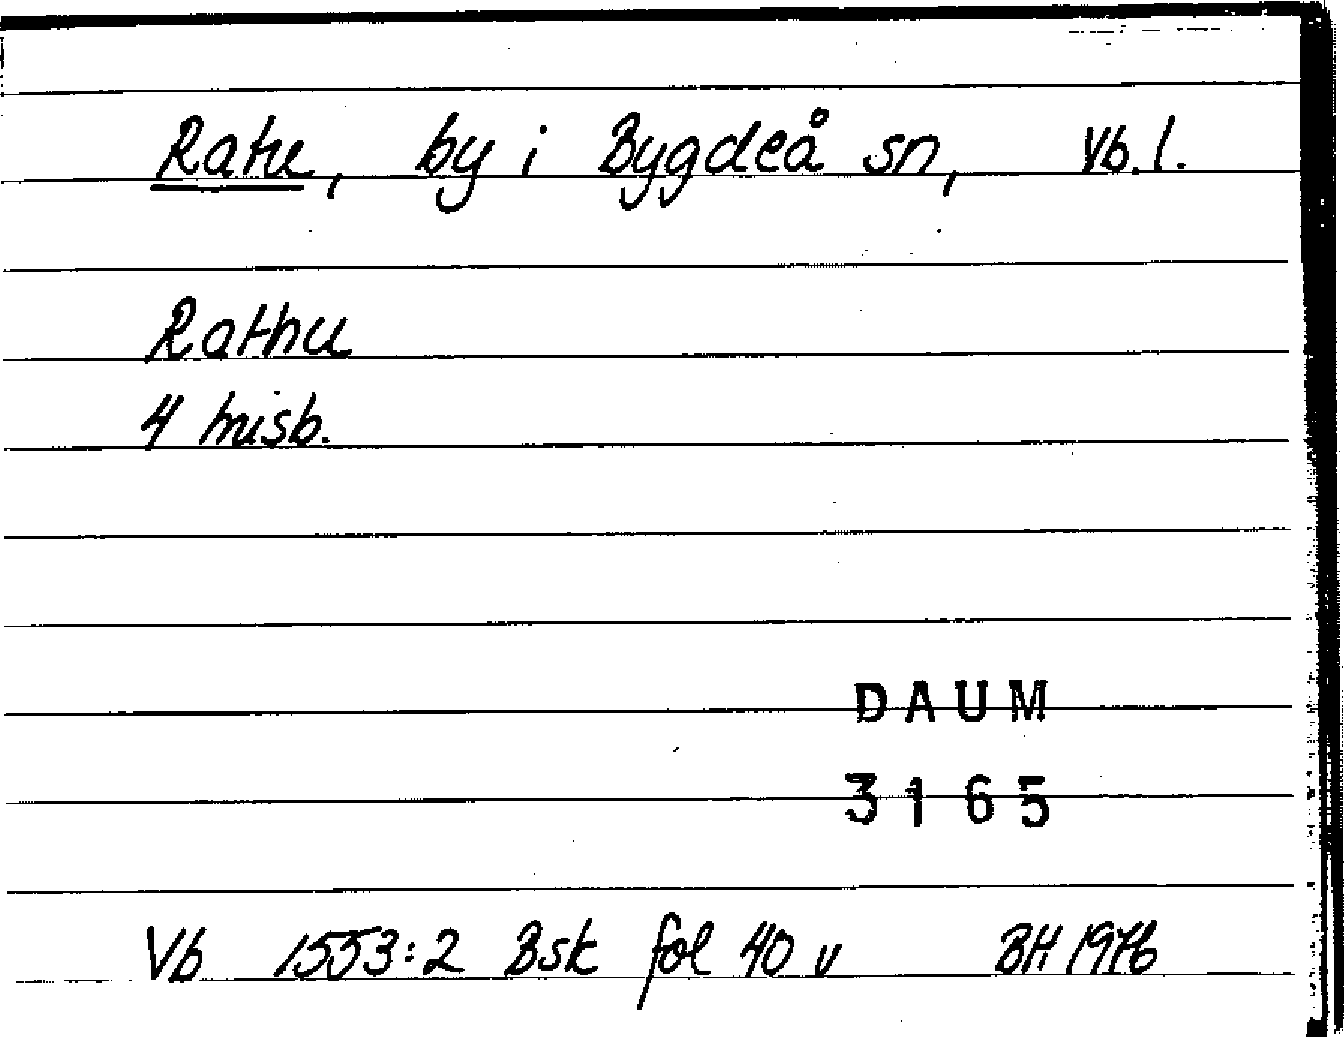 Ratu, by i Bygdeå sn, Vb. l.
Rathu
4 misb.
DAUM
3165
Vb 1553:2 Bsk fol 40 v BH 1976